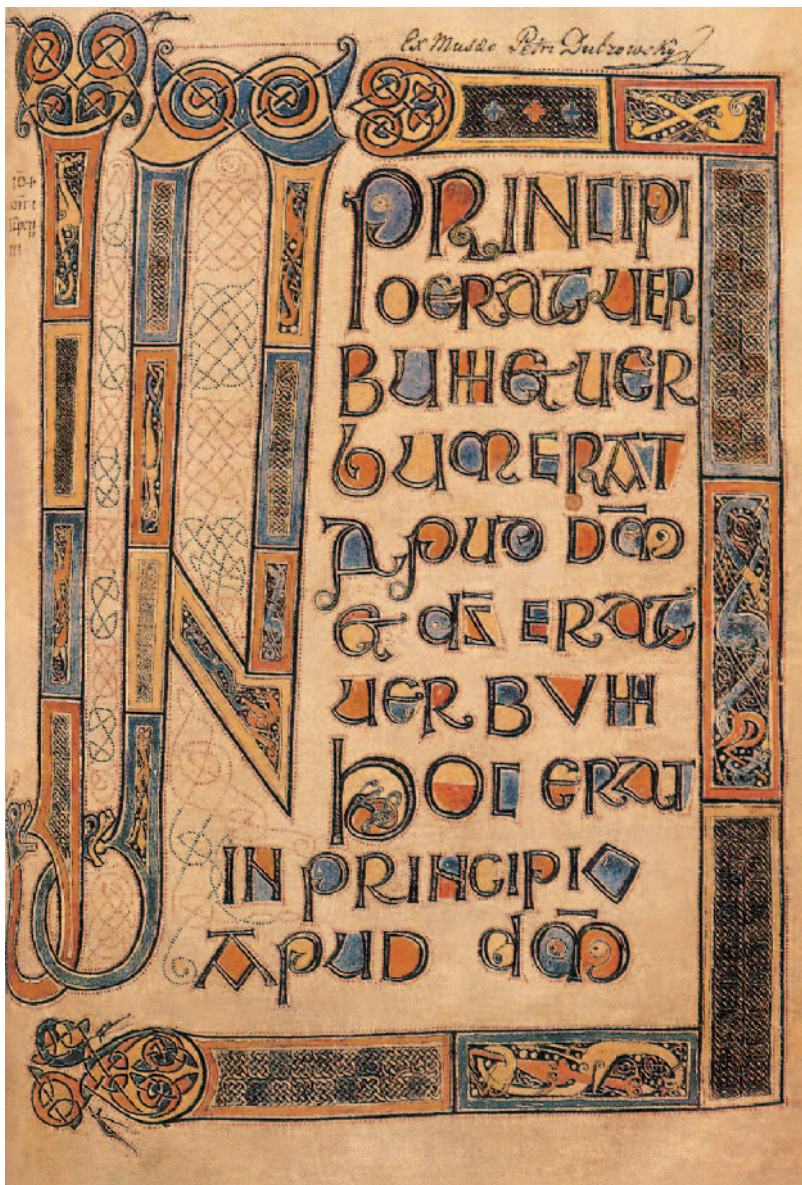 Ex Musæo Petri Dubrowsky
IN
PRINCIPI
OERATUER
BUM&UER
BUMERAT
APUD DM̄
& DS̄ ERAT
UERBVM
HOC ERAT
IN PRINCIPIO
APUD DM̄